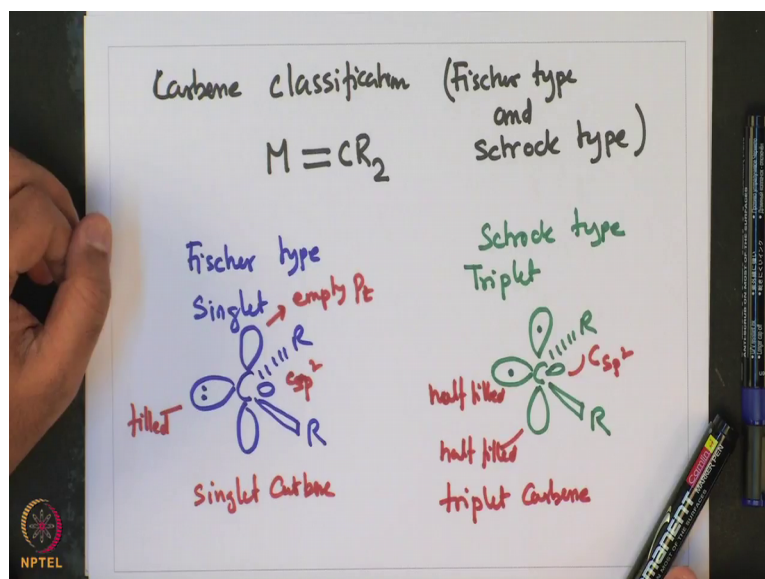 Carbene classification (Fischer type
and
Schrock type)
M=CR₂
Fischer type
Singlet
empty Pz
R
Csp²
C
:
filled
R
Singlet Carbene
Schrock type
Triplet
R
Csp²
C
half filled
R
half filled
triplet Carbene
NPTEL
Camlin
MANENT
MARKER PEN